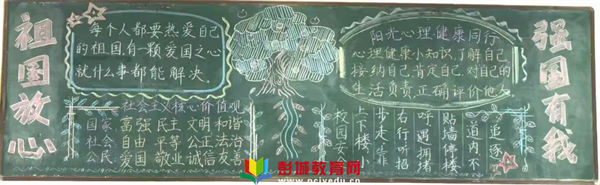 祖国放心
每个人都要热爱自己
的祖国,有一颗爱国之心
就什么事都能解决.
社会主义核心价值观
国家 富强 民主 文明 和谐
社会 自由 平等 公正 法治
公民 爱国 敬业 诚信 友善
阳光心理健康同行
心理健康小知识,了解自己
接纳自己肯定自己,对自己的
生活负责正确评价他人
校园安
上下楼
步走靠
右行听招
呼遇拥堵
贴墙停楼
道内不
追逐
强国有我
彭城教育网